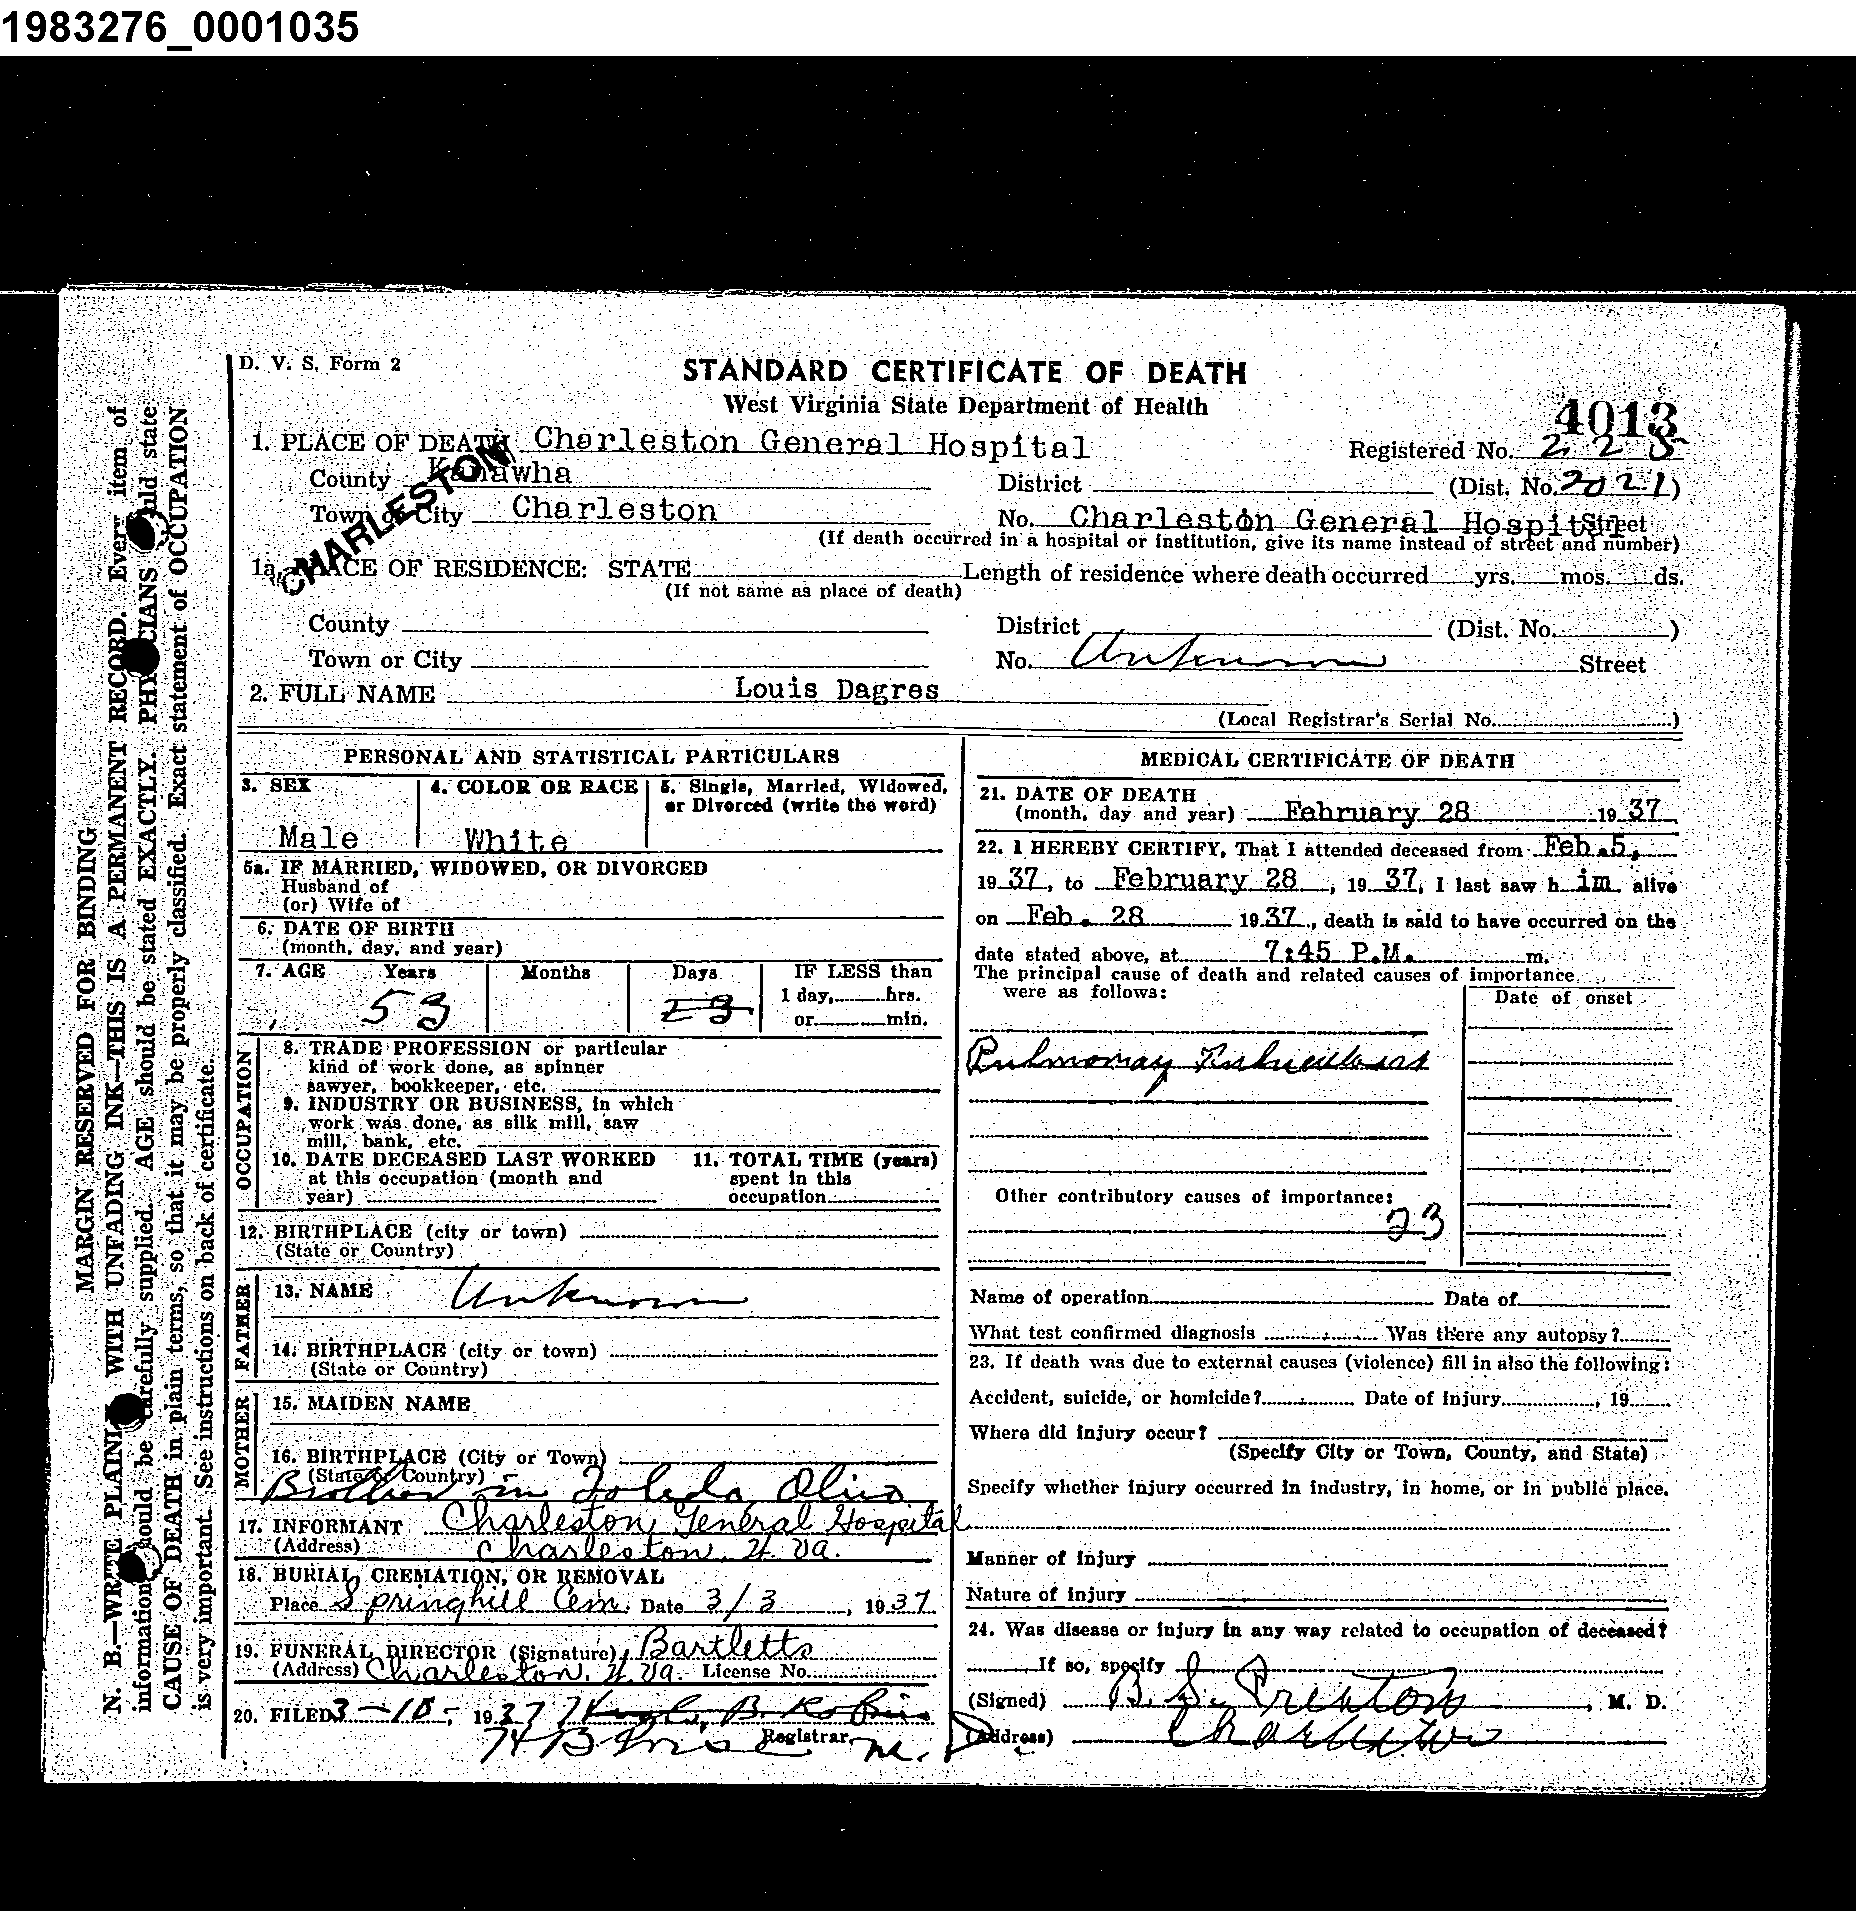 1983276_0001035
D. V. S. Form 2
STANDARD CERTIFICATE OF DEATH
West Virginia State Department of Health
4013
1. PLACE OF DEATH Charleston General Hospital
Registered No. 228
County Kanawha
District (Dist. No. 2021)
Town or City Charleston
No. Charleston General Hospital Street
(If death occurred in a hospital or institution, give its name instead of street and number)
CHARLESTON
1a. PLACE OF RESIDENCE: STATE Length of residence where death occurred yrs. mos. ds.
(If not same as place of death)
County District (Dist. No. )
Town or City No. Unknown Street
2. FULL NAME Louis Dagres
(Local Registrar's Serial No. )
PERSONAL AND STATISTICAL PARTICULARS
3. SEX 4. COLOR OR RACE 5. Single, Married, Widowed,
or Divorced (write the word)
Male White
5a. IF MARRIED, WIDOWED, OR DIVORCED
Husband of
(or) Wife of
6. DATE OF BIRTH
(month, day, and year)
7. AGE Years Months Days IF LESS than
1 day, hrs.
or min.
53 23
OCCUPATION
8. TRADE PROFESSION or particular
kind of work done, as spinner
sawyer, bookkeeper, etc.
9. INDUSTRY OR BUSINESS, in which
work was done, as silk mill, saw
mill, bank, etc.
10. DATE DECEASED LAST WORKED 11. TOTAL TIME (years)
at this occupation (month and spent in this
year) occupation
12. BIRTHPLACE (city or town)
(State or Country)
FATHER
13. NAME Unknown
14. BIRTHPLACE (city or town)
(State or Country)
MOTHER
15. MAIDEN NAME
16. BIRTHPLACE (City or Town)
(State or Country)
Brother in Toledo Ohio
17. INFORMANT Charleston General Hospital
(Address) Charleston, W. Va.
18. BURIAL, CREMATION, OR REMOVAL
Place Springhill Cem. Date 3/3, 1937
19. FUNERAL DIRECTOR (Signature) Bartletts
(Address) Charleston, W. Va. License No.
20. FILED 3-10-, 1937
Registrar.
MEDICAL CERTIFICATE OF DEATH
21. DATE OF DEATH
(month, day and year) February 28 1937
22. I HEREBY CERTIFY, That I attended deceased from Feb. 5,
1937, to February 28, 1937, I last saw him alive
on Feb. 28 1937, death is said to have occurred on the
date stated above, at 7:45 P.M. m.
The principal cause of death and related causes of importance
were as follows: Date of onset
Pulmonary Tuberculosis
Other contributory causes of importance:
23
Name of operation Date of
What test confirmed diagnosis Was there any autopsy?
23. If death was due to external causes (violence) fill in also the following:
Accident, suicide, or homicide? Date of injury , 19
Where did injury occur?
(Specify City or Town, County, and State)
Specify whether injury occurred in industry, in home, or in public place.
Manner of injury
Nature of injury
24. Was disease or injury in any way related to occupation of deceased?
If so, specify
(Signed) B. S. Preston, M. D.
(Address) Charleston
MARGIN RESERVED FOR BINDING
N. B.—WRITE PLAINLY WITH UNFADING INK—THIS IS A PERMANENT RECORD. Every item of
information should be carefully supplied. AGE should be stated EXACTLY. PHYSICIANS should state
CAUSE OF DEATH in plain terms, so that it may be properly classified. Exact statement of OCCUPATION
is very important. See instructions on back of certificate.